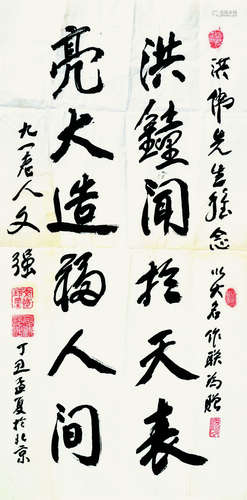 洪先生念 以大名作联为赠
洪鐘闻於天表
亮大造福人间
九一老人文强
丁丑孟夏於北京